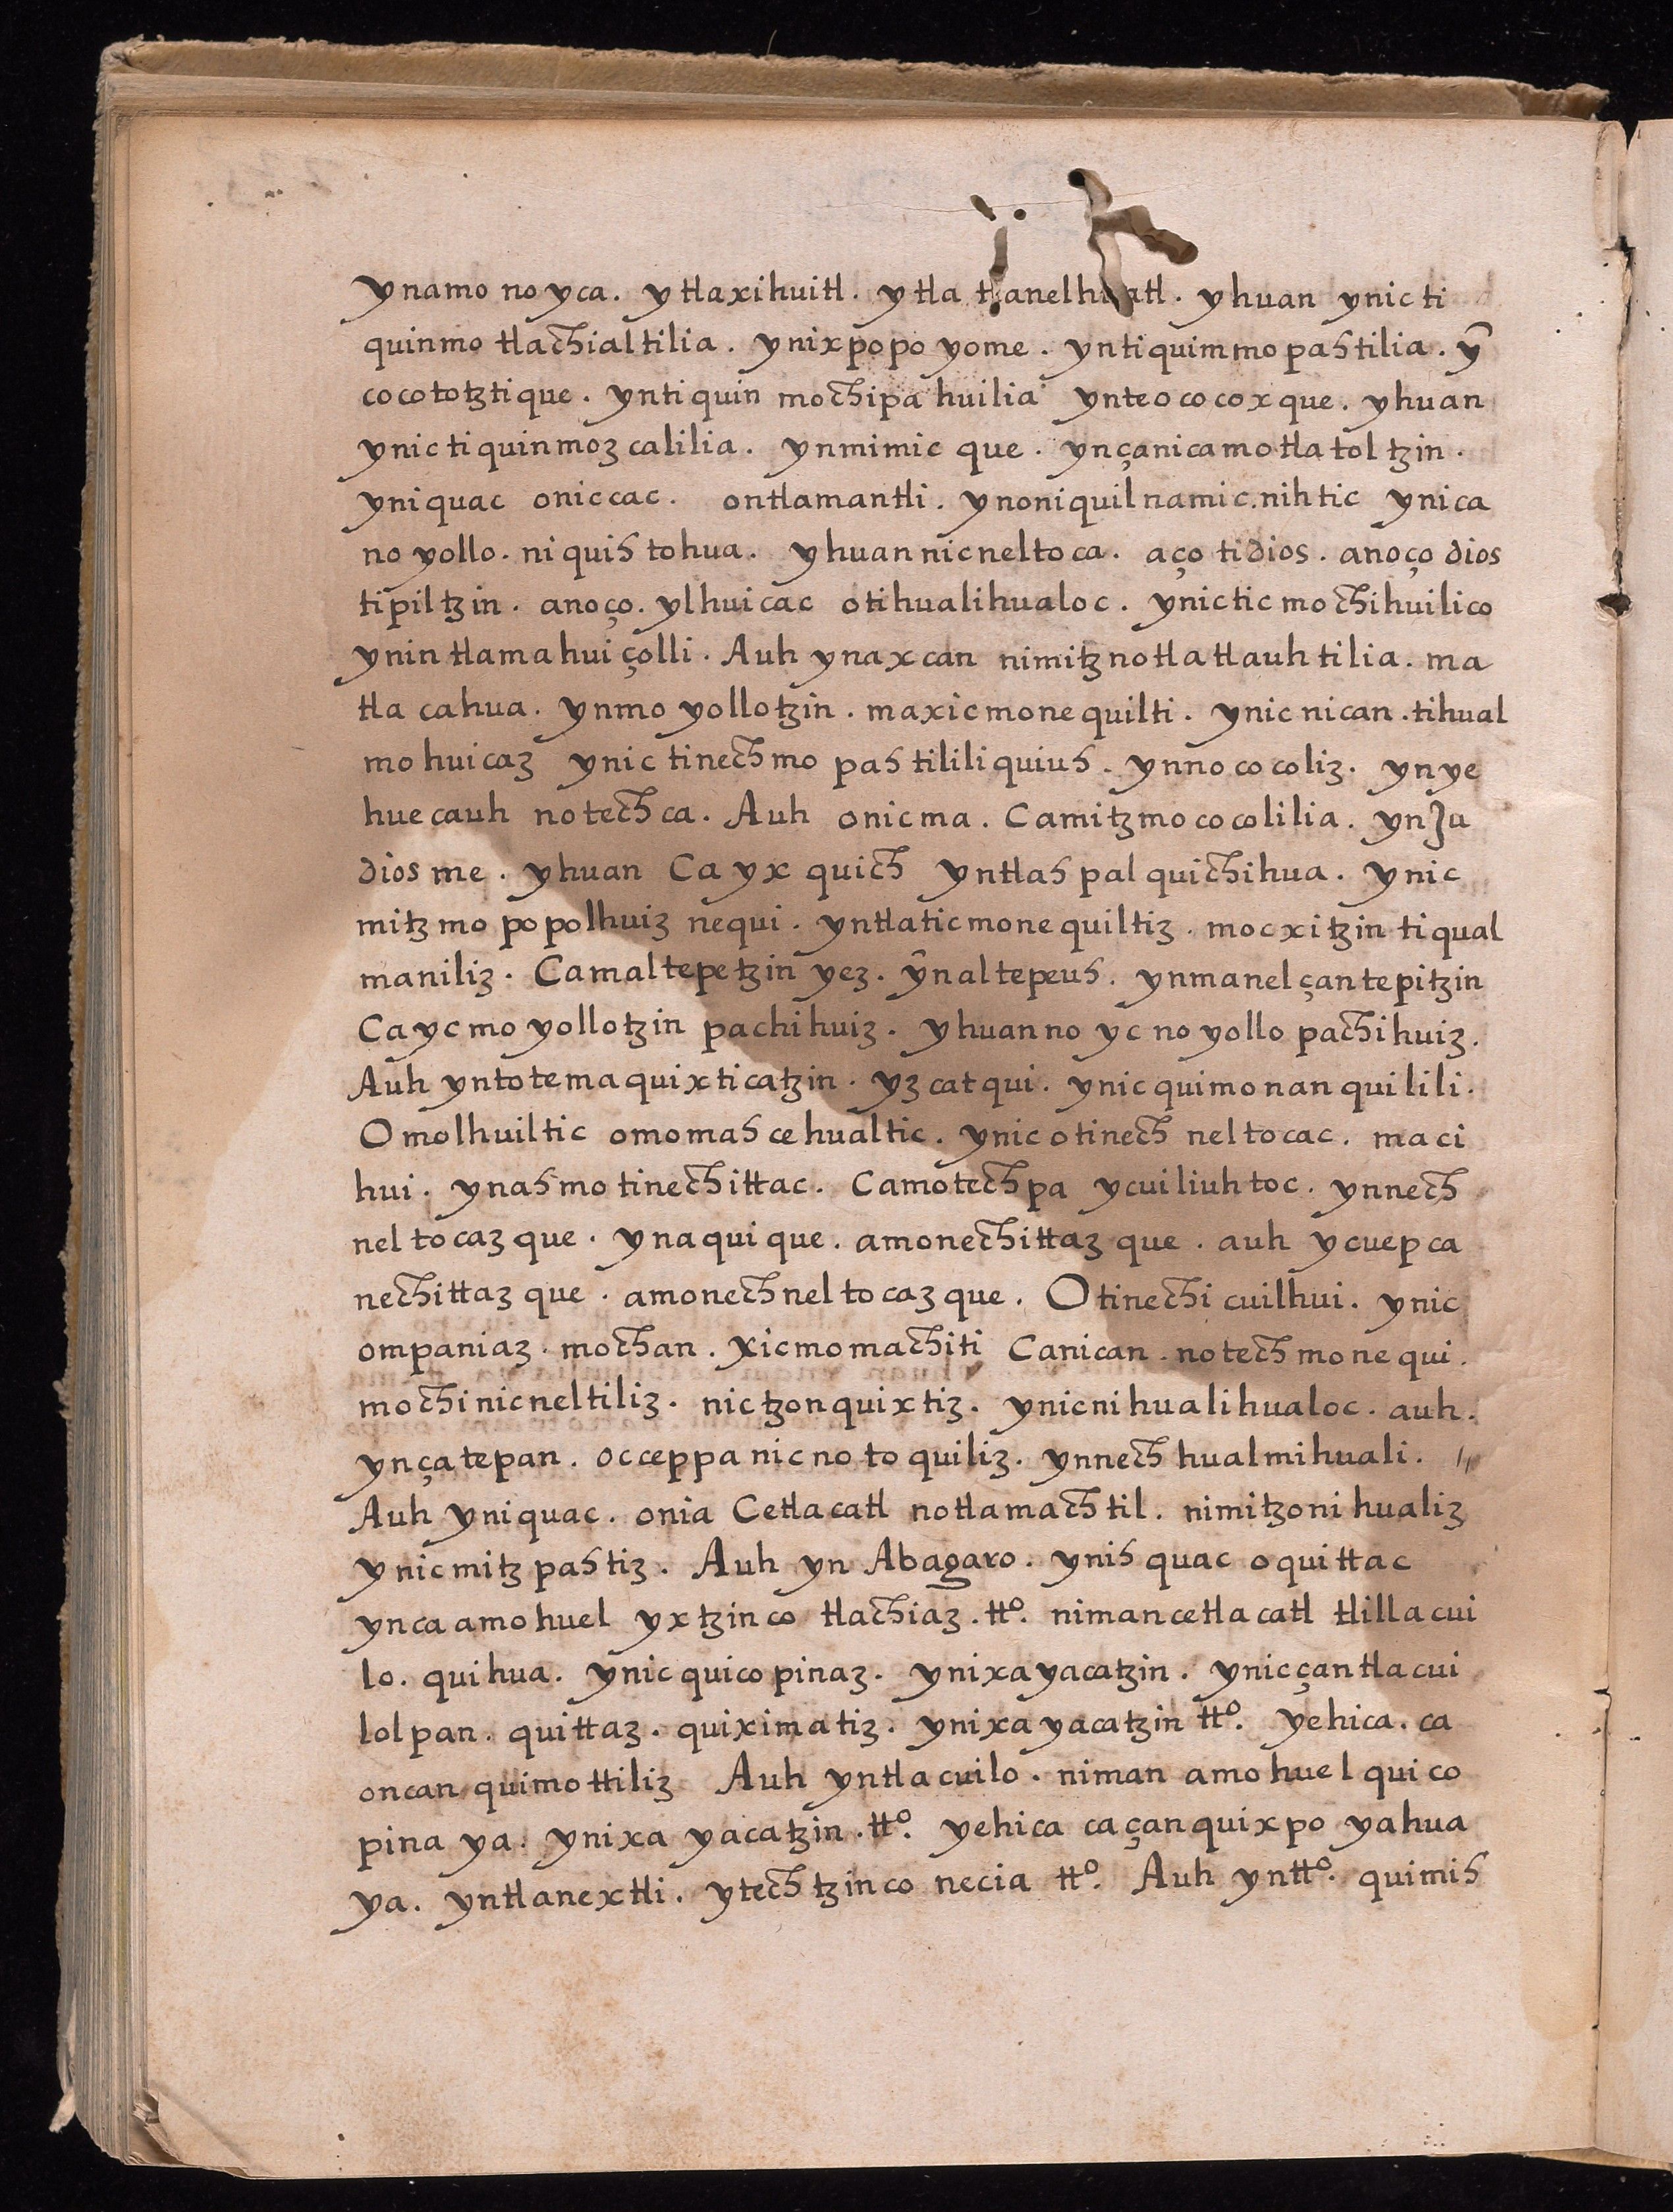 ynamo no yca. ytlaxihuitl. ytla tlanelhuatl. yhuan ynic ti
quinmo tlachialtilia. ynixpopo yome. yntiquimmopahtilia. yn̄
cocototztique. yntiquin mochipahuilia ynteococoxque. yhuan
ynic tiquinmozcalilia. ynmimic que. ynçanicamotlatoltzin.
yniquac oniccac. ontlamantli. ynoniquilnamic. nihtic ynica
no yollo. niquihtohua. yhuan nicneltoca. aço tidios. anoço dios
tipiltzin. anoço. ylhuicac otihualihualoc. ynic ticmochihuilico
ynin tlamahuiçolli. Auh ynaxcan nimitznotlatlauhtilia. ma
tlacahua. ynmo yollotzin. maxicmonequilti. ynic nican. tihual
mohuicaz ynic tinechmo pahtililiquiuh. ynnococoliz. ynye
huecauh notechca. Auh onicma. Camitzmococolilia. ynJu
diosme. yhuan Ca yxquich yntlahpalquichihua. ynic
mitzmopopolhuiz nequi. yntlaticmonequiltiz. mocxitzin tiqual
maniliz. Camaltepetzin yez. ȳnaltepeuh. ynmanelçantepitzin
Ca yc mo yollotzin pachihuiz. yhuanno yc no yollo pachihuiz.
Auh yntotemaquixticatzin. yzcatqui. ynic quimonanquilili.
Omolhuiltic omomahcehualtic. ynic otinech neltocac. maci
hui. ynahmo tinechittac. Camotechpa ycuiliuhtoc. ynnech
neltocazque. ynaquique. amonechittazque. auh ycuepca
nechittazque. amonechneltocazque. Otinechicuilhui. ynic
ompaniaz. mochan. xicmomachiti Canican. notechmonequi.
mochinicneltiliz. nictzonquixtiz. ynicnihualihualoc. auh.
ynçatepan. occeppa nicnotoquiliz. ynnech hualmihuali. //
Auh yniquac. onia Cetlacatl notlamachtil. nimitzonihualiz
ynicmitzpahtiz. Auh yn Abagaro. ynihquac oquittac
ynca amohuel yxtzinco tlachiaz. tto. nimancetlacatl tlillacui
lo. quihua. ynic quicopinaz. ynixayacatzin. ynicçantlacui
lolpan. quittaz. quiximatiz. ynixayacatzin tto. yehica. ca
oncan quimottiliz Auh yntlacuilo. niman amohuel quico
pina ya. ynixayacatzin. tto. yehica caçanquixpoyahua
ya. yntlanextli. ytechtzinco necia tto. Auh yntto. quimih